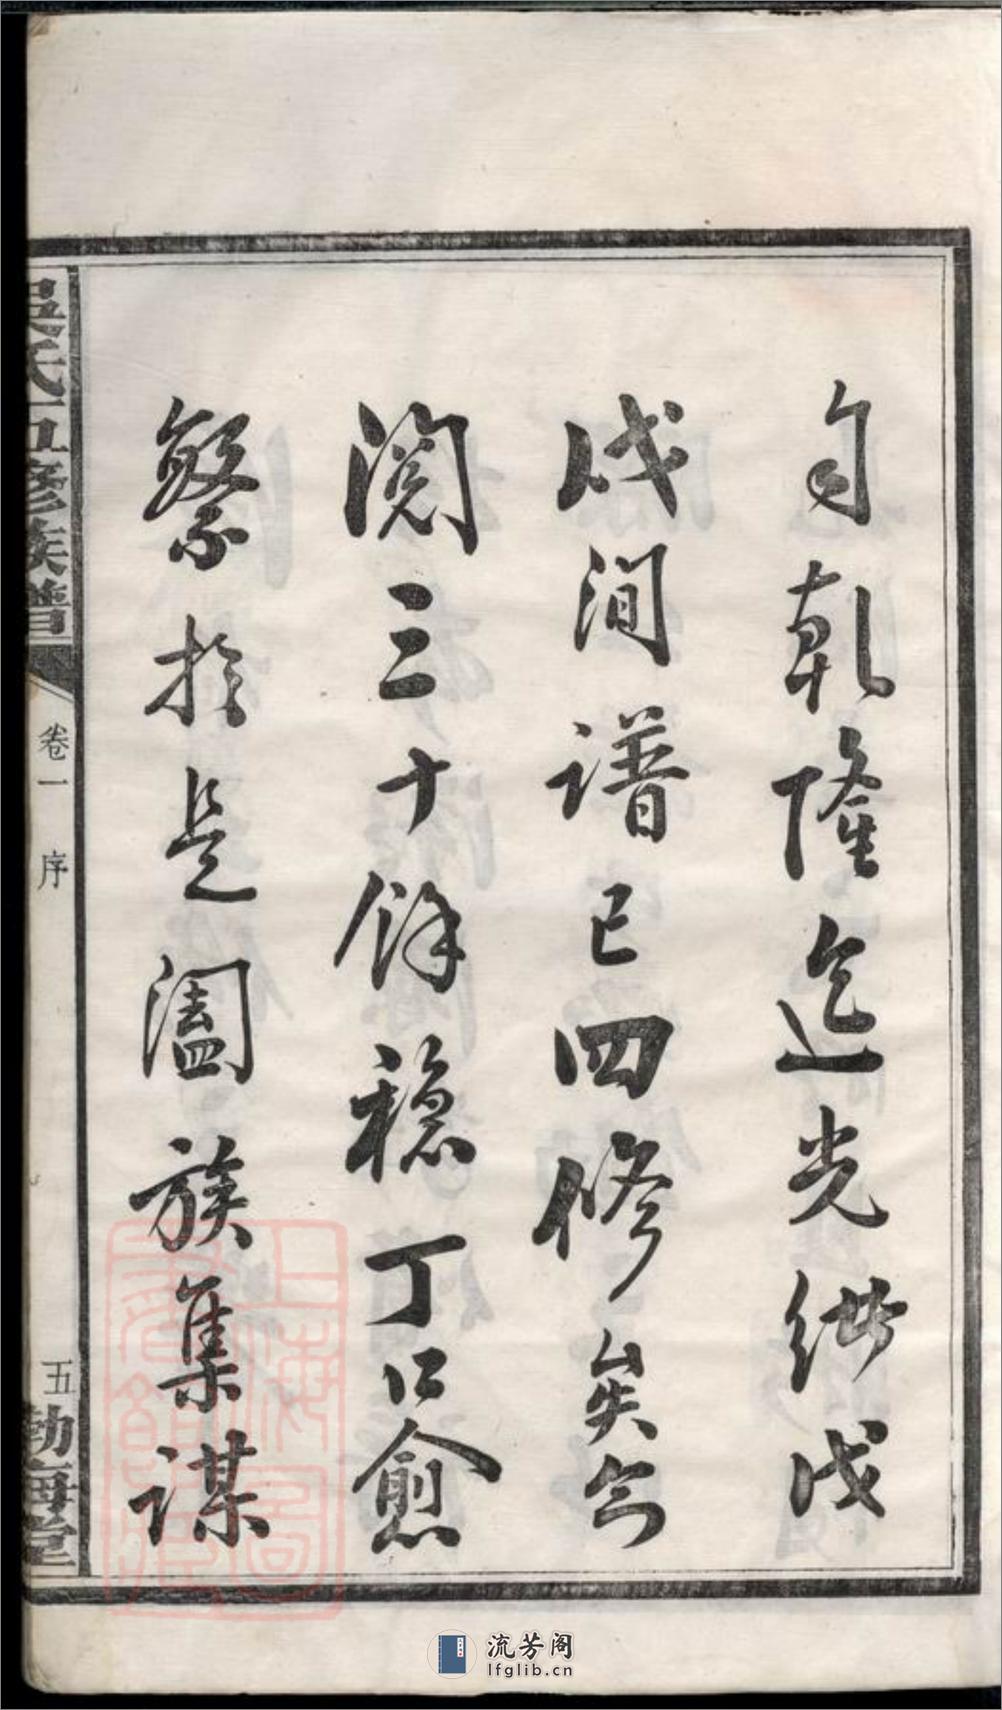 自乾隆迄光緒戊
戌间譜已四修矣今
閱三十餘稔丁口愈
繁於是闔族集謀
吳氏五修族譜
卷一 序
五
勃海堂
上海圖書館藏
流芳阁
lfglib.cn